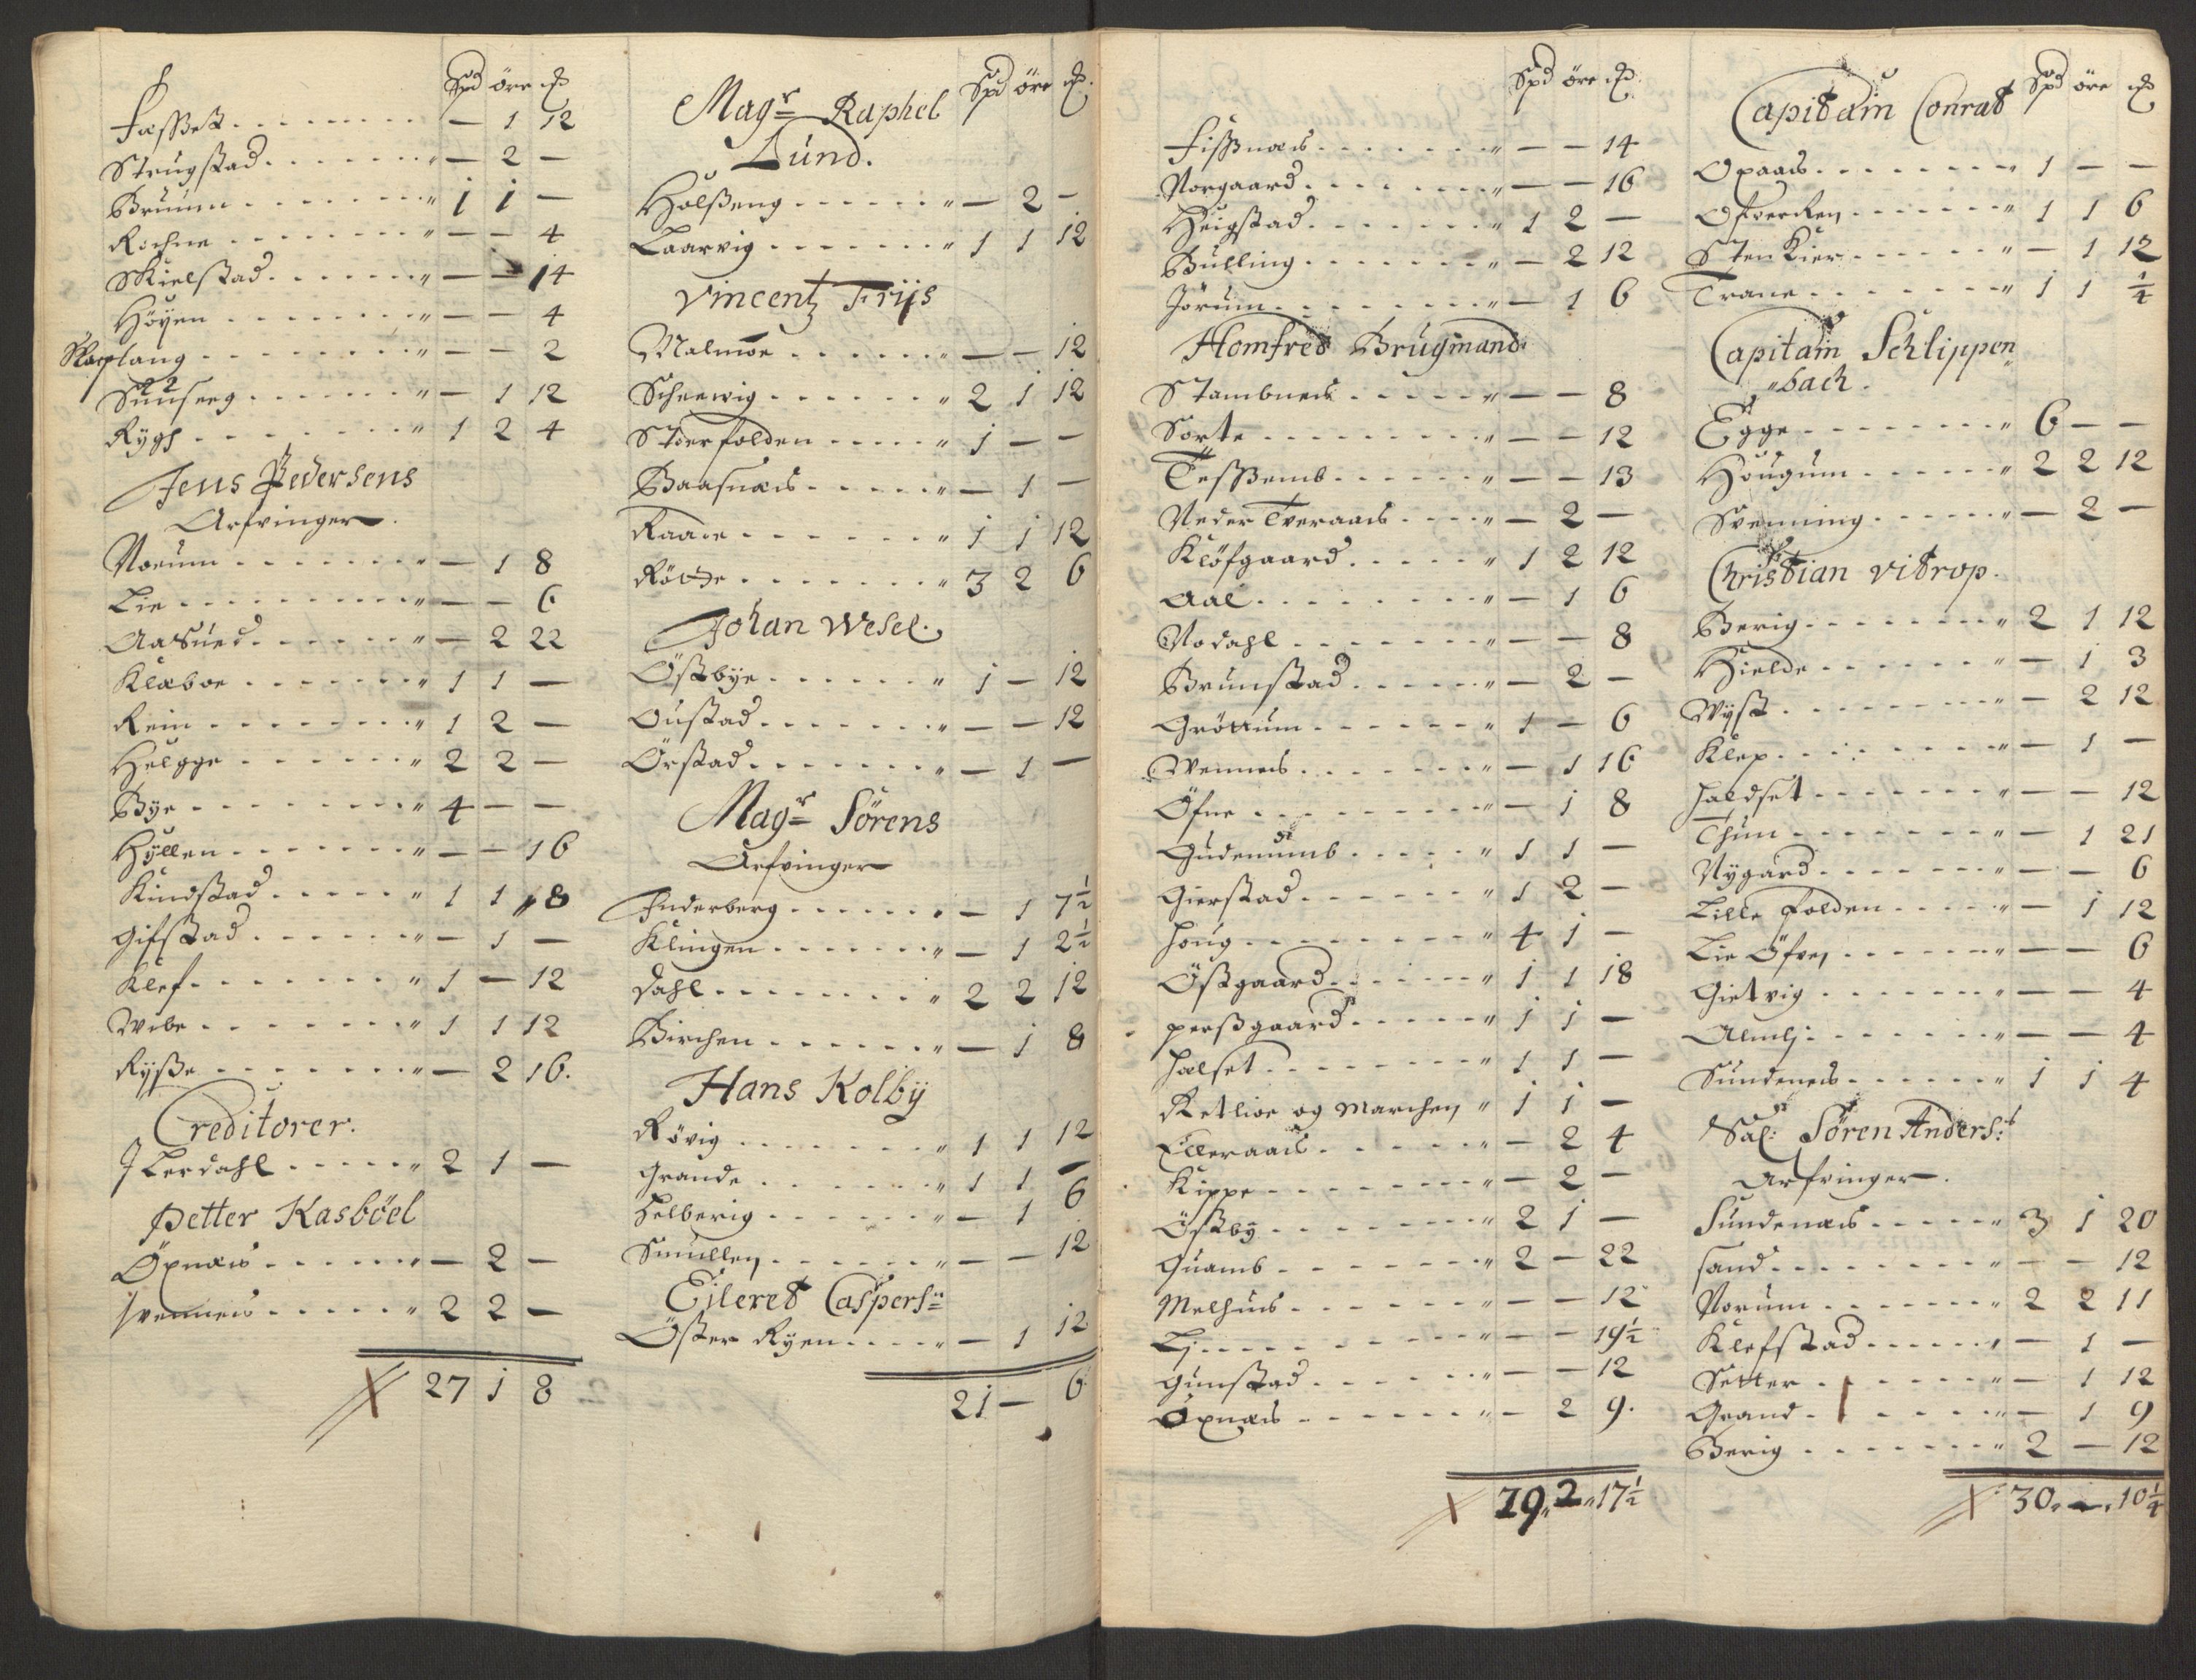 Spd öre ℔
Fæssset - 1 12
Strugstad - 2 -
Bruumn 1 1 -
Rochne - - 4
Skielstad - - 14
Höyen - - 4
Skarplang - - 2
Suuseeg - 1 12
Rygh 1 2 4
Jens Pedersens
Arfvinger.
Norum - 1 8
Lie - - 6
Aasued - 2 22
Klæboe 1 1 -
Rein 1 2 -
Helgge 2 2 -
Bye 4 - -
Hyllen - - 16
Kindstad 1 1 8
Gifstad - 1 -
Klef 1 - 12
Wibe 1 1 12
Rysse - 2 16.
Creditorer.
Lerdahl 2 1 -
Petter Kasböel
Öxnæs - 2 -
2 2 -
27 1 8
Spd öre ℔.
Magr Raphel
Lund.
Holsseng - 2 -
Laarvig 1 1 12
Vincentz Friis
Malmoe - - 12
Scheevig 2 1 12
Stoerfolden 1 - -
Baasnæs - 1 -
Raaen 1 1 12
Rötze 3 2 6
Johan Wesel.
Östbye 1 - 12
Oustad - - 12
Örstad - 1 -
Magr Sörens
Arfvinger
Inderberg - 1 7½
Klingen - 1 2½
Dahl 2 2 12
Birchen - 1 8
Hans Kolbÿ
Rövig 1 1 12
Grande 1 1 -
Helberig - 1 6
Smullen - - 12
Eileret Caspers:
Öster Ryen - 1 12
21 - 6
Spd öre ℔.
Fissnæs - - 14
Norgaard - - 16
Heigstad 1 2 -
Bulling - 2 12
Jörum - 1 6
Homfred Brugmand:
Stambnes - - 8
Sorte - - 12
Tessemb - - 13
Neder Tveraaes - 2 -
Klöfgaard 1 2 12
Aal - 1 6
Nodahl - - 8
Brunstad - 2 -
Gröttum 1 - 6
Wennes - 1 16
Öfne - 1 8
Gudenumb 1 1 -
Gierstad 1 2 -
Houg 4 1 -
Östgaard 1 1 18
Perssgaard 1 1 -
Halset 1 1 -
Ketlioe og Marchen 1 1 -
Elleraaes - 2 4
Kippe - 2 -
Östby 2 1 -
Quamb 2 - 22
Melhuus - - 12
Lj - - 19½
Gumstad - - 12
Öxnæs - 2 9.
29. 2. 17½
Spd öre ℔
Capitain Conrat
Oxaaes 1 - -
Ofverken 1 1 6
Stenkier - 1 12
Trane 1 1 ¼
Capitain Schlippen
bach.
Egge 6 - -
Hougum 2 2 12
Svenning - 2 -
Christian Vitrop.
Berig 2 1 12
Hielde - 1 3
Wyst - 2 12
Klep - 1 -
Haldset - - 12
Thun - 1 21
Nygard - - 6
Lille Folden - 1 12
Lie Öfren - - 6
Gietvig - - 4
Almlj: - - 4
Sundenes 1 1 4
Sal: Sören Anders:
Arfvinger.
Sundenæs 3 1 20
Sand - - 12
Norum 2 2 11
Klefstad - 1 -
Setter - 1 12
Grand - 1 9
Berig 2 - 12
30. -. 10¼